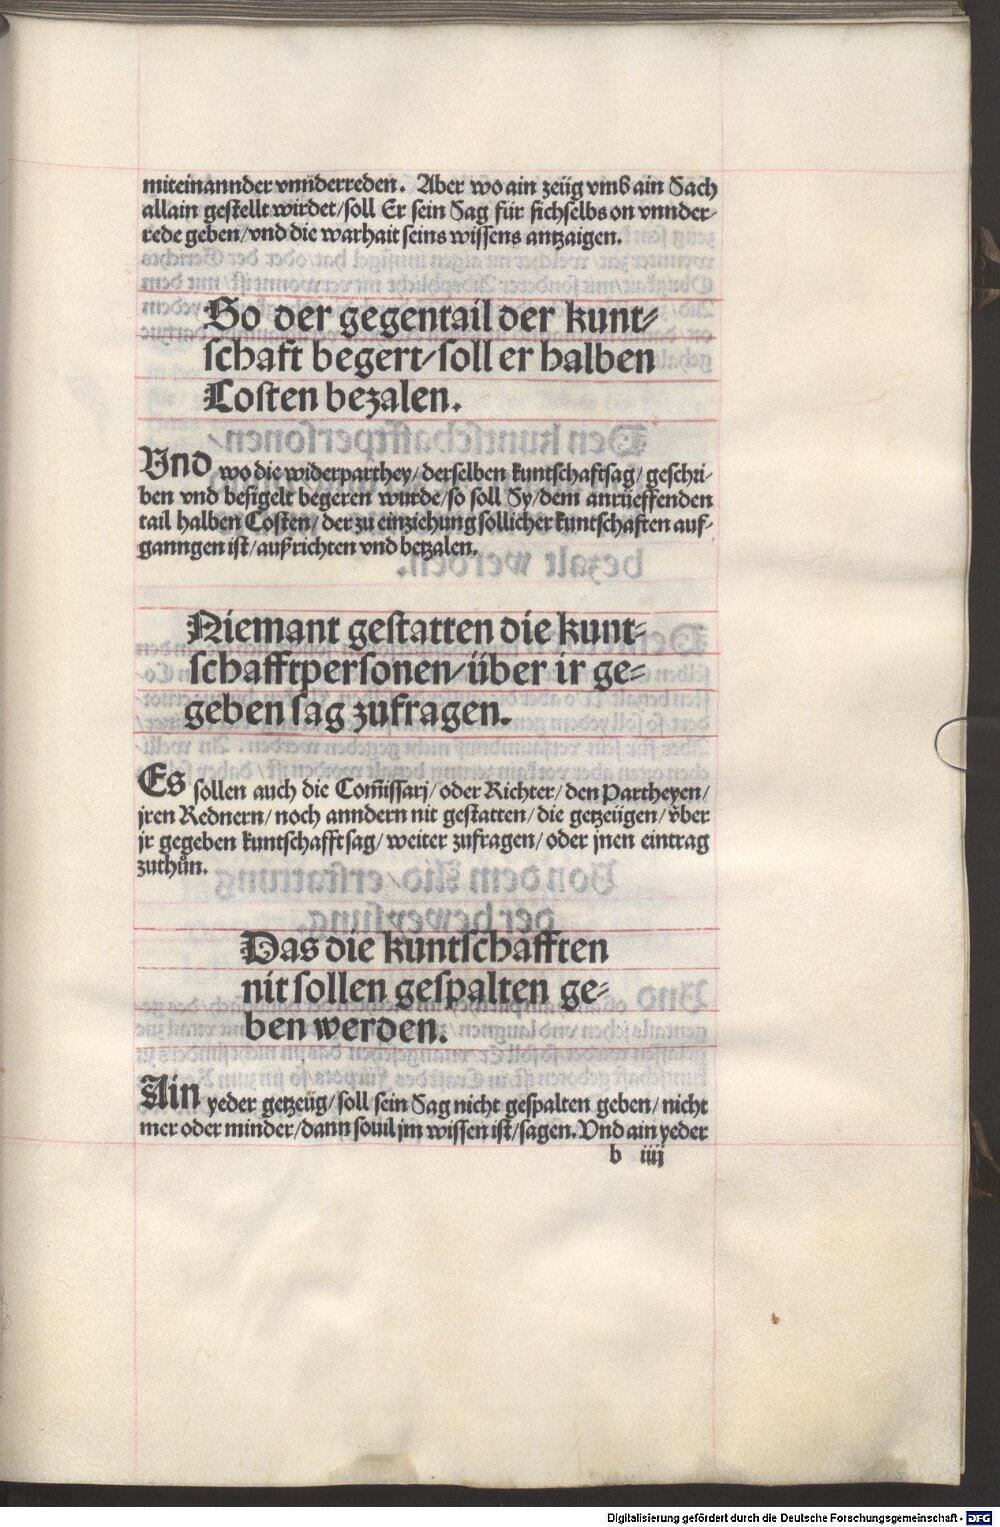 miteinannder vnnderreden. Aber wo ain zeüg vmb ain Sach
allain gestellt wirdet/soll Er sein Sag für sichselbs on vnnder-
rede geben/vnd die warhait seins wissens antzaigen.
So der gegentail der kunt-
schaft begert/soll er halben
Costen bezalen.
Vnd wo die widerparthey/derselben kuntschaftsag/geschri-
ben vnd besigelt begeren wurde/so soll Sy/dem anrüeffenden
tail halben Costen/der zu einziehung söllicher kuntschaften auf-
ganngen ist/außrichten vnd betzalen.
Niemant gestatten die kunt-
schafftpersonen/über ir ge-
geben sag zufragen.
Es sollen auch die Com̄issarj/oder Richter/den Partheyen/
jren Rednern/noch anndern nit gestatten/die getzeügen/v̈ber
jr gegeben kuntschafftsag/weiter zufragen/oder jnen eintrag
zuthůn.
Das die kuntschafften
nit sollen gespalten ge-
ben werden.
Ain yeder getzeüg/soll sein Sag nicht gespalten geben/nicht
mer oder minder/dann souil jm wissen ist/sagen. Vnd ain yeder
b iiij
Digitalisierung gefördert durch die Deutsche Forschungsgemeinschaft - DFG